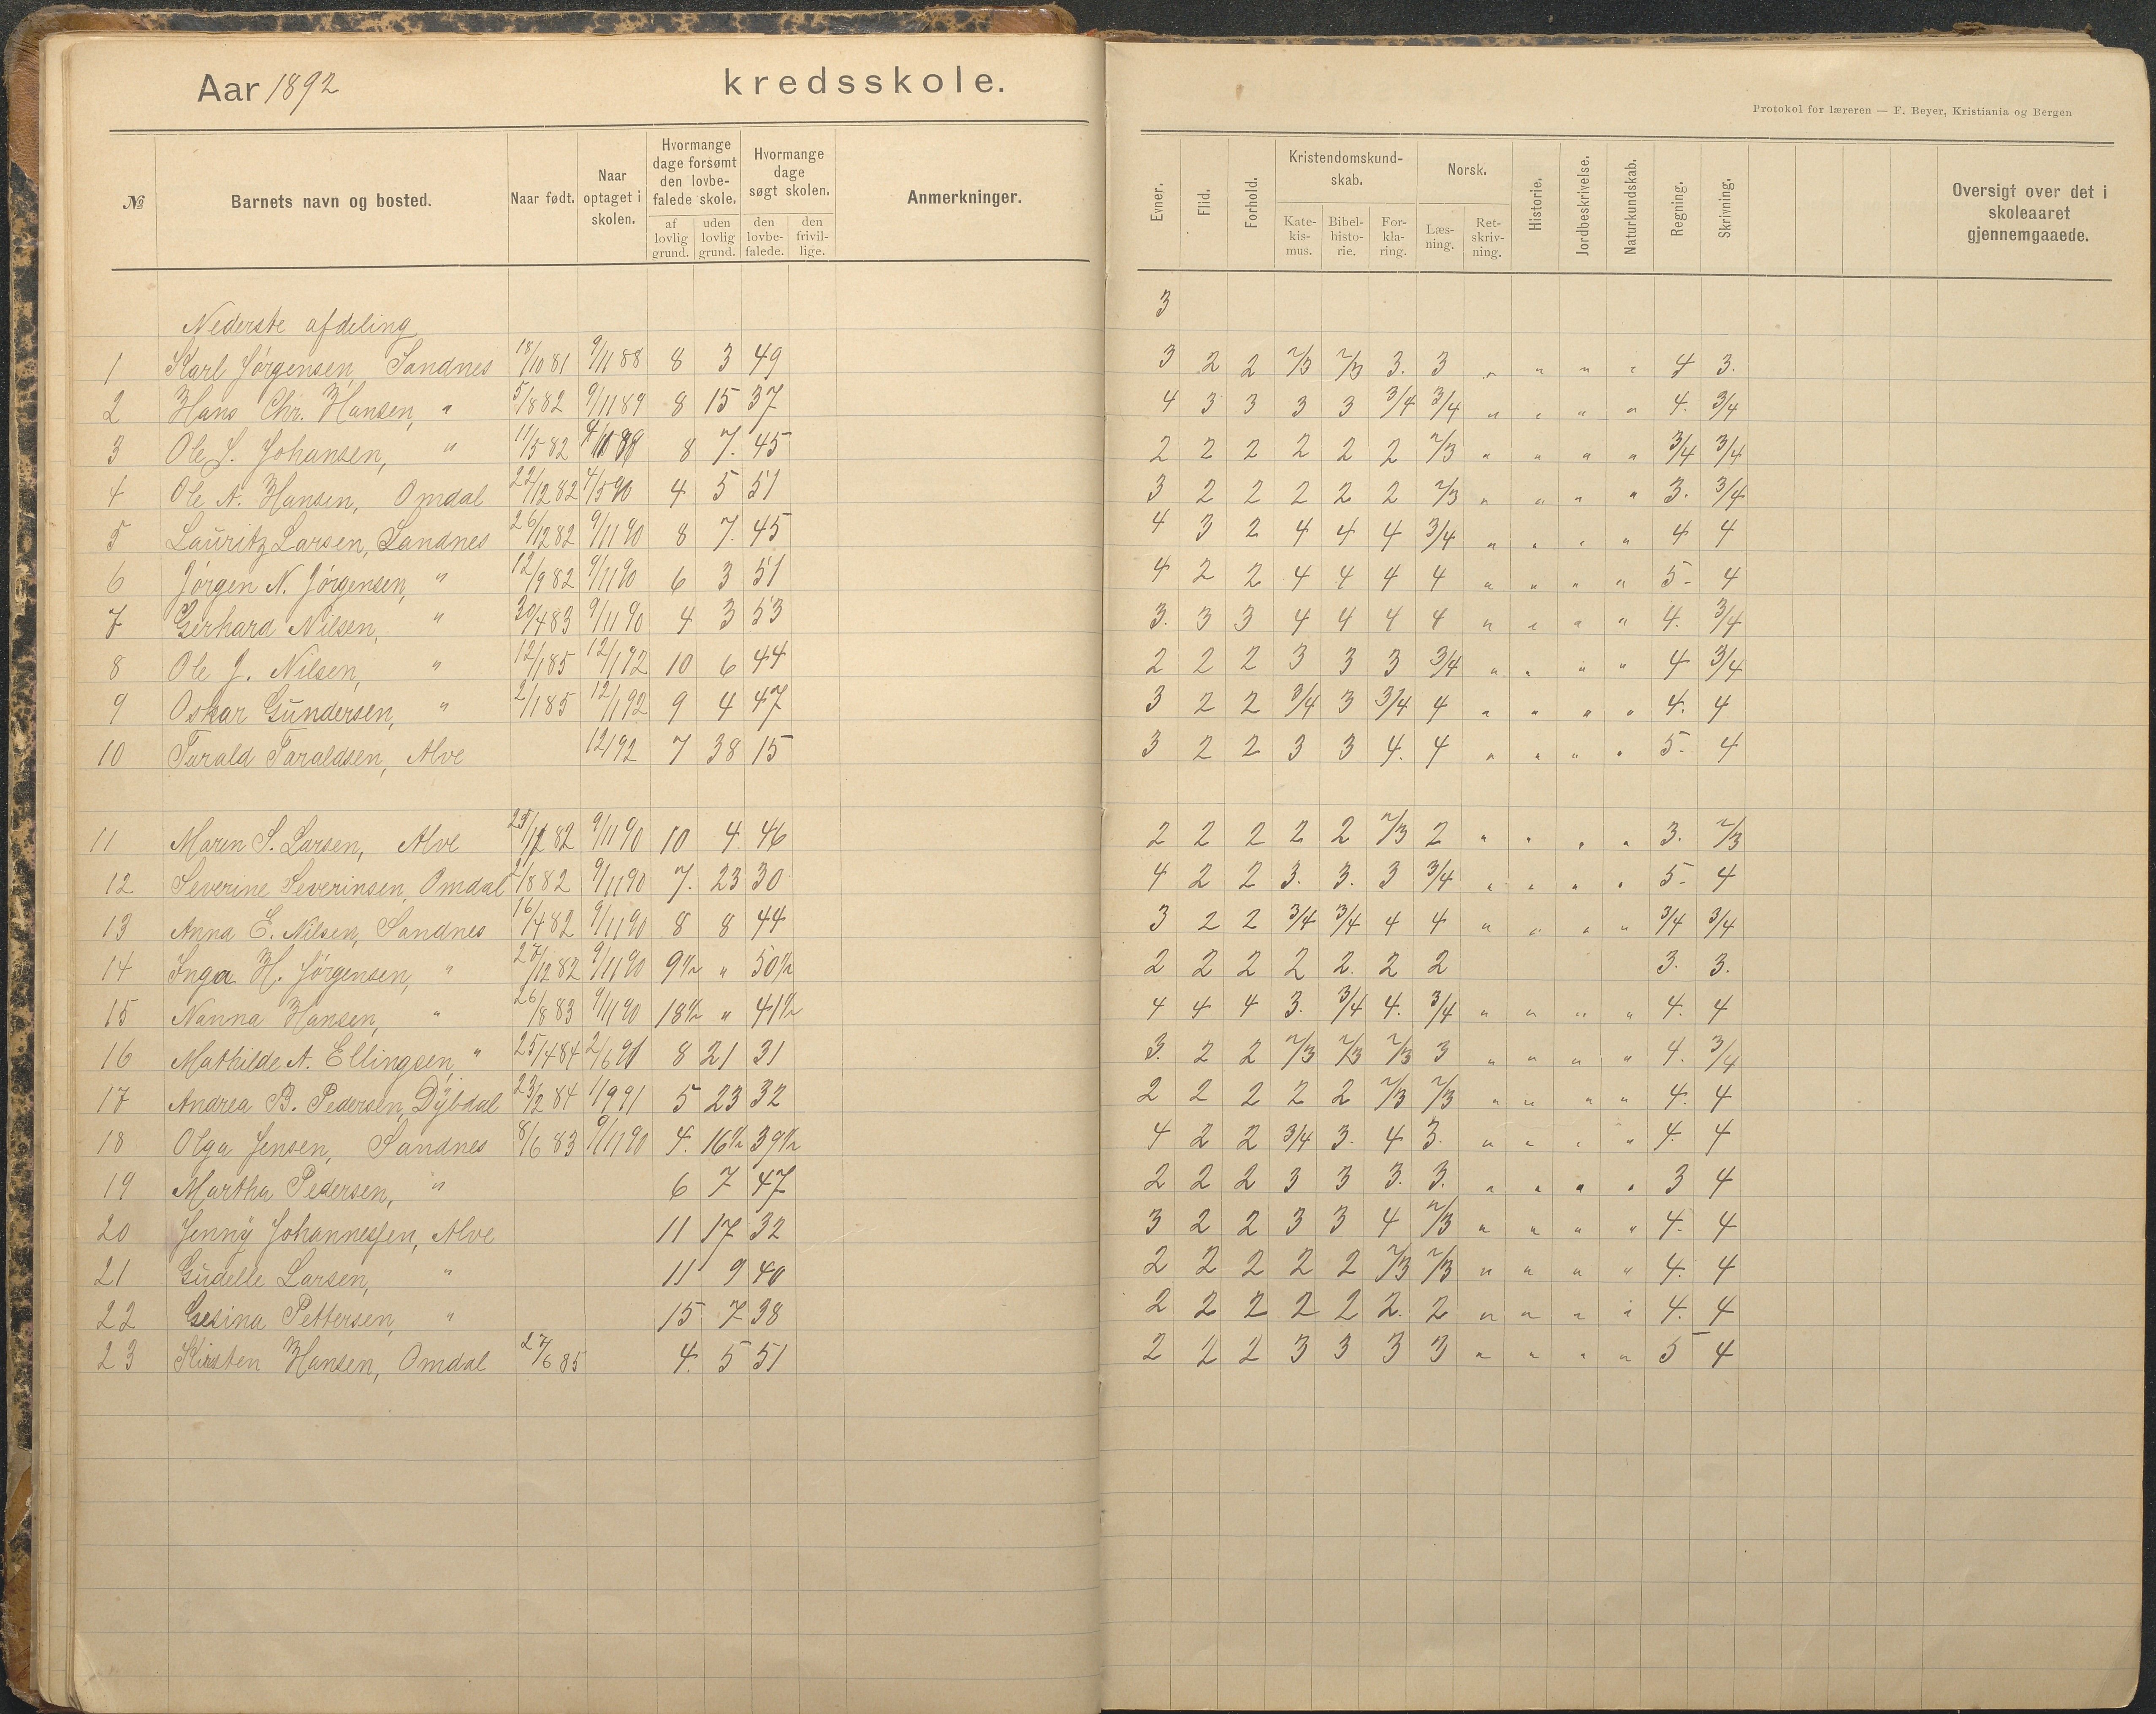 Aar 1892 kredsskole.
Protokol for læreren — F. Beyer, Kristiania og Bergen
№ Barnets navn og bosted. Naar født. Naar optaget i skolen. Hvormange dage forsømt den lovbefalede skole, af lovlig grund. uden lovlig grund. Hvormange dage søgt skolen, den lovbefalede. den frivillige. Anmerkninger.
Evner. Flid. Forhold. Kristendomskundskab. Katekismus. Bibelhistorie. Forklaring. Norsk. Læsning. Retskrivning. Historie. Jordbeskrivelse. Naturkundskab. Regning. Skrivning. Oversigt over det i skoleaaret gjennemgaaede.
3
Nederste afdeling
1 Karl Jørgensen Sandnes 18/10 81 9/11 88 8 3 49 3 2 2 2/3 2/3 3. 3 " " " " 4 3.
2 Hans Chr. Hansen, " 5/8 82 9/11 89 8 15 37 4 3 3 3 3 3/4 3/4 " " " " 4. 3/4
3 Ole S. Johansen, " 11/5 82 9/11 89 8 7. 45 2 2 2 2 2 2 2/3 " " " " 3/4 3/4
4 Ole A. Hansen, Omdal 22/12 82 4/5 90 4 5 51 3 2 2 2 2 2 2/3 " " " " 3. 3/4
5 Lauritz Larsen, Sandnes 26/12 82 9/11 90 8 7. 45 4 3 2 4 4 4 3/4 " " " " 4 4
6 Jørgen N. Jørgensen, " 12/9 82 9/11 90 6 3 51 4 2 2 4 4 4 4 " " " " 5- 4
7 Gerhard Nilsen, " 30/4 83 9/11 90 4 3 53 3. 3 3 4 4 4 4 " " " " 4. 3/4
8 Ole J. Nilsen, " 12/1 85 12/1 92 10 6 44 2 2 2 3 3 3 3/4 " " " " 4 3/4
9 Oskar Gundersen, " 2/1 85 12/1 92 9 4 47 3 2 2 3/4 3 3/4 4 " " " " 4. 4
10 Tarald Taraldsen, Alve 12/1 92 7 38 15 3 2 2 3 3 4. 4 " " " " 5- 4
11 Maren S. Larsen, Alve 82 9/11 90 10 4 46 2 2 2 2 2 2/3 2 " " " " 3. 2/3
12 Severine Severinsen, Omdal /8 82 9/11 90 7. 23 30 4 2 2 3. 3. 3 3/4 " " " " 5- 4
13 Anna E. Nilsen, Sandnes 16/4 82 9/11 90 8 8 44 3 2 2 3/4 3/4 4 4 " " " " 3/4 3/4
14 Inga H. Jørgensen, " 27/12 82 9/11 90 9½ " 50½ 2 2 2 2 2. 2 2 3. 3.
15 Nanna Hansen, " 26/8 83 9/11 90 18½ " 41½ 4 4 4 3. 3/4 4. 3/4 " " " " 4. 4
16 Mathilde A. Ellingsen, " 25/4 84 2/6 91 8 21 31 3. 2 2 2/3 2/3 2/3 3 " " " " 4. 3/4
17 Andrea B. Pedersen, Dybdal 23/2 84 1/9 91 5 23 32 2 2 2 2 2 2/3 2/3 " " " " 4. 4
18 Olga Jensen, Sandnes 8/6 83 9/11 90 4. 16½ 39½ 4 2 2 3/4 3. 4 3. " " " " 4. 4
19 Martha Pedersen, " 6 7 47 2 2 2 3 3 3. 3. " " " " 3 4
20 Jenny Johannessen, Alve 11 17 32 3 2 2 3 3 4 2/3 " " " " 4. 4
21 Gudelle Larsen, " 11 9 40 2 2 2 2 2 2/3 2/3 " " " " 4. 4
22 Gesina Pettersen, " 15 7 38 2 2 2 2 2 2. 2 " " " " 4. 4
23 Kirsten Hansen, Omdal 27/6 85 4. 5 51 2 2 2 3 3 3 3 " " " " 5 4